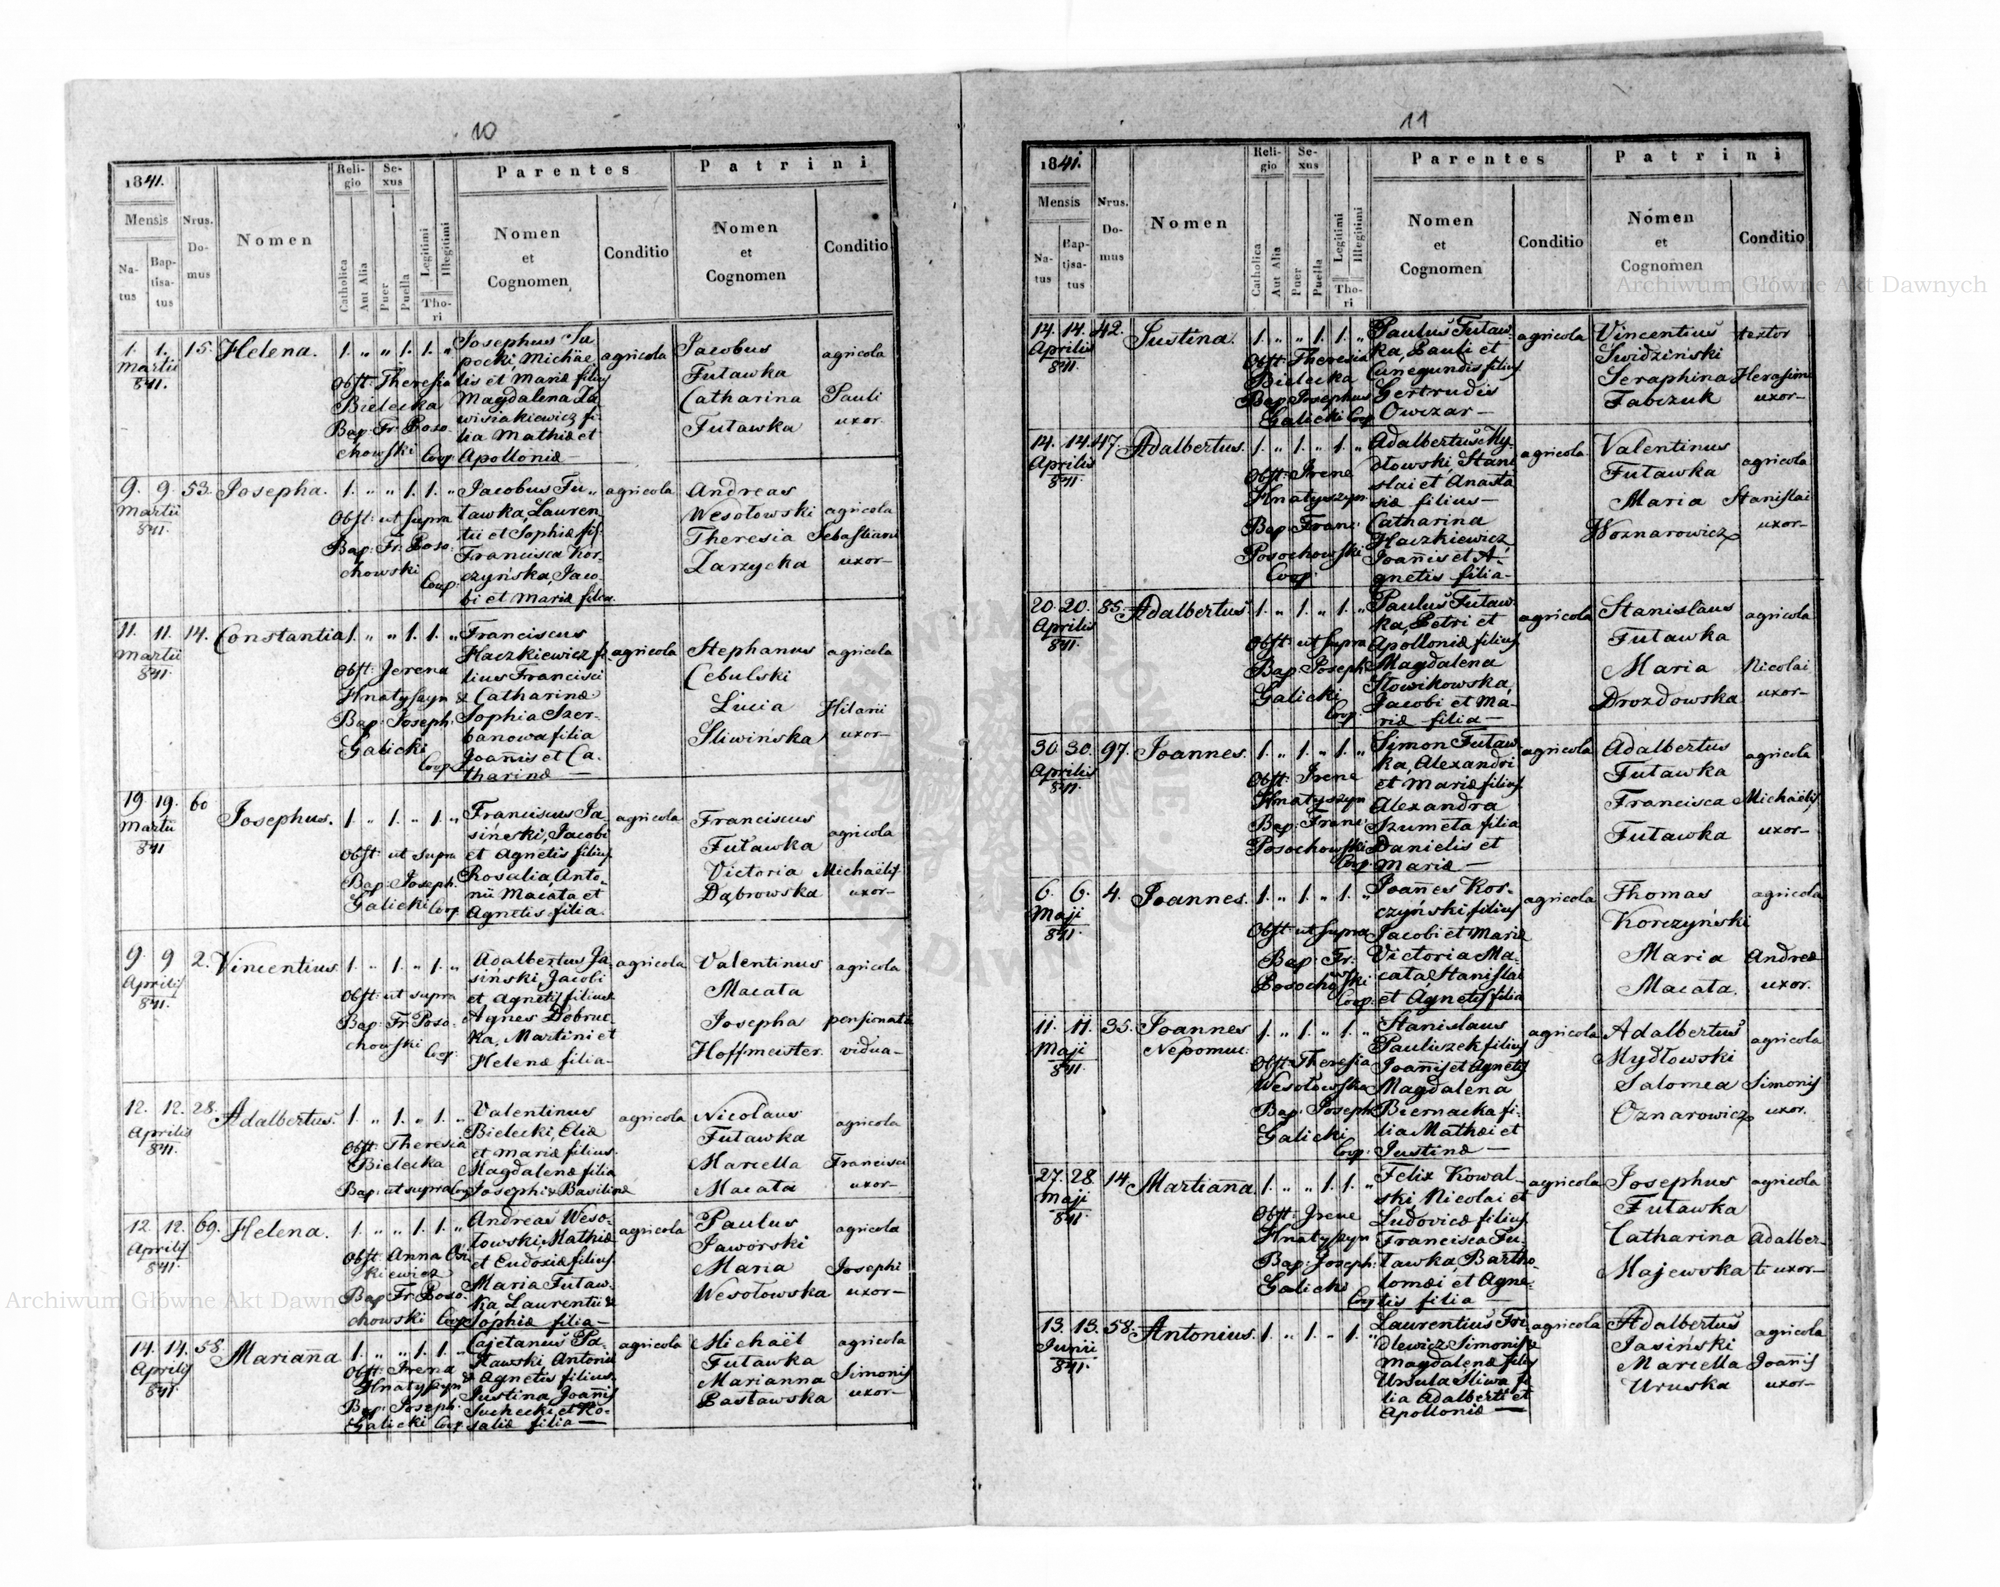 10
1841.
Mensis
Na-
tus
Bap-
tisa-
tus
Nrus.
Do-
mus
Nomen
Reli-
gio
Catholica
Aut Alia
Se-
xus
Puer
Puella
Legitimi
Illegitimi
Tho-
ri
Parentes
Nomen
et
Cognomen
Conditio
Patrini
Nomen
et
Cognomen
Conditio
1. 1. 15. Helena. 1. „ „ 1. 1. „
Martii
841.
Obst: Theresia
Bielecka
Bap: Fr. Poso-
chowski Coop:
Josephus Su
pecki, Michae
lis et Mariæ filius
Magdalena Za
wisiakiewicz fi-
lia Mathiæ et
Apolloniæ —
agricola
Jacobus
Futawka
Catharina
Futawka
agricola
Pauli
uxor.
9. 9. 53. Josepha. 1. „ „ 1. 1. „
Martii
841.
Obst: ut supra
Bap: Fr. Poso-
chowski
Coop:
Jacobus Fu„
tawka, Lauren
tii et Sophiæ fil:
Francisca Kor-
czyńska, Jaco-
bi et Mariæ filia.
agricola
Andreas
Wesołowski
Theresia
Zarzycka
agricola
Sebastiani
uxor—
11. 11. 14. Constantia 1. „ „ 1. 1. „
Martii
841.
Obst: Jerena
Hnatyszyn
Bap: Joseph:
Galicki
Coop.
Franciscus
Haczkiewicz fi-
lius Francisci
& Catharinæ
Sophia Szer-
banowa filia
Joannis et Ca-
tharinæ —
agricola
Stephanus
Cebulski
Lucia
Śliwińska
agricola
Hilarii
uxor—
19. 19. 60 Josephus. 1. „ 1. „ 1. „
Martii
841
Obst: ut supra
Bap: Joseph:
Galicki Coop:
Franciscus Ja-
siński, Jacobi
et Agnetis filius
Rosalia, Anto-
nii Macata et
Agnetis filia.
agricola
Franciscus
Futawka
Victoria
Dąbrowska
agricola
Michaëlis
uxor—
9. 9 2. Vincentius. 1. „ 1. „ 1. „
Aprilis
841.
Obst: ut supra
Bap: Fr. Poso-
chowski Coop:
Adalbertus Ja-
siński, Jacobi
et Agnetis filius
Agnes Dobruc-
ka, Martini et
Helenæ filia—
agricola
Valentinus
Macata
Josepha
Hoffmeister.
agricola
pensionata
vidua—
12. 12. 28. Adalbertus. 1. „ 1. „ 1. „
Aprilis
841.
Obst: Theresia
Bielecka
Bap: ut supra Coop
Valentinus
Bielecki, Eliæ
et Mariæ filius.
Magdalenæ filia
Josephi & Basilinæ
agricola
Nicolaus
Futawka
Marcella
Macata
agricola
Francisci
uxor—
12. 12. 69. Helena. 1. „ „ 1. 1. „
Aprilis
841.
Bap Fr. Poso-
chowski Coop
Andreas Weso-
łowski, Mathiæ
et Eudoxiæ filius.
Maria Futaw-
ka, Laurentii &
Sophiæ filia—
agricola
Paulus
Jaworski
Maria
Wesołowska
agricola
Josephi
uxor—
14. 14. 58. Marianna 1. „ „ 1. 1. „
Aprilis
841.
Obst: Irena
Hnatyszyn
Bap: Joseph:
Galicki Coop
Cajetanus Pa-
stawski, Antonii
& Agnetis filius.
Justina, Joannis
Suchecki, et Ro-
saliæ filia —
agricola
Michaël
Futawka
Marianna
Pastawska
agricola
Simonis
uxor—
11
1841.
Mensis
Na-
tus
Bap-
tisa-
tus
Nrus.
Do-
mus
Nomen
Reli-
gio
Catholica
Aut Alia
Se-
xus
Puer
Puella
Legitimi
Illegitimi
Tho-
ri
Parentes
Nomen
et
Cognomen
Conditio
Patrini
Nomen
et
Cognomen
Conditio
14. 14. 42. Justina. 1. „ „ 1. 1. „
Aprilis
841.
Obst: Theresia
Bielecka
Bap: Josephus
Galicki Coop
Paulus Futaw-
ka, Pauli et
Cunegundis filius
Gertrudis
Owczar —
agricola
Vincentius
Świdziński
Seraphina
Tabczuk
textor
Herasimi
uxor—
14. 14. 47. Adalbertus. 1. „ 1. „ 1. „
Aprilis
841.
Obst: Irene
Hnatyszyn
Bap: Franc:
Posochowski
Coop:
Adalbertus My-
dłowski, Stani
slai et Anasta
siæ filius—
Catharina
Haczkiewicz
Joannis et A-
gnetis filia—
agricola
Valentinus
Futawka
Maria
Woznarowicz
agricola
Stanislai
uxor—
20. 20. 85. Adalbertus. 1. „ 1. „ 1. „
Aprilis
841.
Obst: ut supra
Bap: Joseph:
Galicki
Coop:
Paulus Futaw-
ka, Petri et
Apolloniæ filius
Magdalena
Słowikowska,
Jacobi et Ma-
riæ filia —
agricola
Stanislaus
Futawka
Maria
Drozdowska
agricola
Nicolai
uxor—
30. 30. 97. Joannes. 1. „ 1. „ 1. „
Aprilis
841.
Obst: Irene
Hnatyszyn
Bap: Franc:
Posochowski
Coop:
Simon Futaw-
ka, Alexandri
et Mariæ filius.
Alexandra
Szumeta filia
Danielis et
Mariæ —
agricola
Adalbertus
Futawka
Francisca
Futawka
agricola
Michaëlis
uxor—
6. 6. 4. Joannes. 1. „ 1. „ 1. „
Maji
841.
Obst: ut supra
Bap: Fr.
Posochowski
Coop:
Joannes Kor-
czyński filius
Jacobi et Mariæ
Victoria Ma-
cata, Stanislai
et Agnetis filia
agricola
Thomas
Korczyński
Maria
Macata.
agricola
Andreæ
uxor.
11. 11. 35. Joannes
Nepomuc. 1. „ 1. „ 1. „
Maji
841.
Obst: Theresia
Wesołowska
Bap: Joseph
Galicki
Coop:
Stanislaus
Pauliszek filius
Joannis et Agnetis
Magdalena
Biernacka fi-
lia Mathæi et
Justinæ —
agricola
Adalbertus
Mydłowski
Salomea
Oznarowicz
agricola
Simonis
uxor.
27. 28. 14. Marianna. 1. „ „ 1. 1. „
Maji
841.
Obst: Irene
Hnatyszyn
Bap: Joseph:
Galicki
Coop
Felix Kowal-
ski Nicolai et
Ludovicæ filius.
Francisca Fu-
tawka, Bartho-
lomæi et Agne-
tis filia —
agricola
Josephus
Futawka
Catharina
Majewska
agricola
Adalber-
ti uxor—
13. 13. 58. Antonius. 1. „ 1. „ 1. „
Junii
841.
Laurentius Fri-
dlewicz Simonis &
Magdalenæ filius
Ursula Śliwa fi-
lia Adalberti et
Apolloniæ —
agricola
Adalbertus
Jasiński
Marcella
Uruska
agricola
Joannis
uxor—
Archiwum Główne Akt Dawnych
Archiwum Główne Akt Dawnych